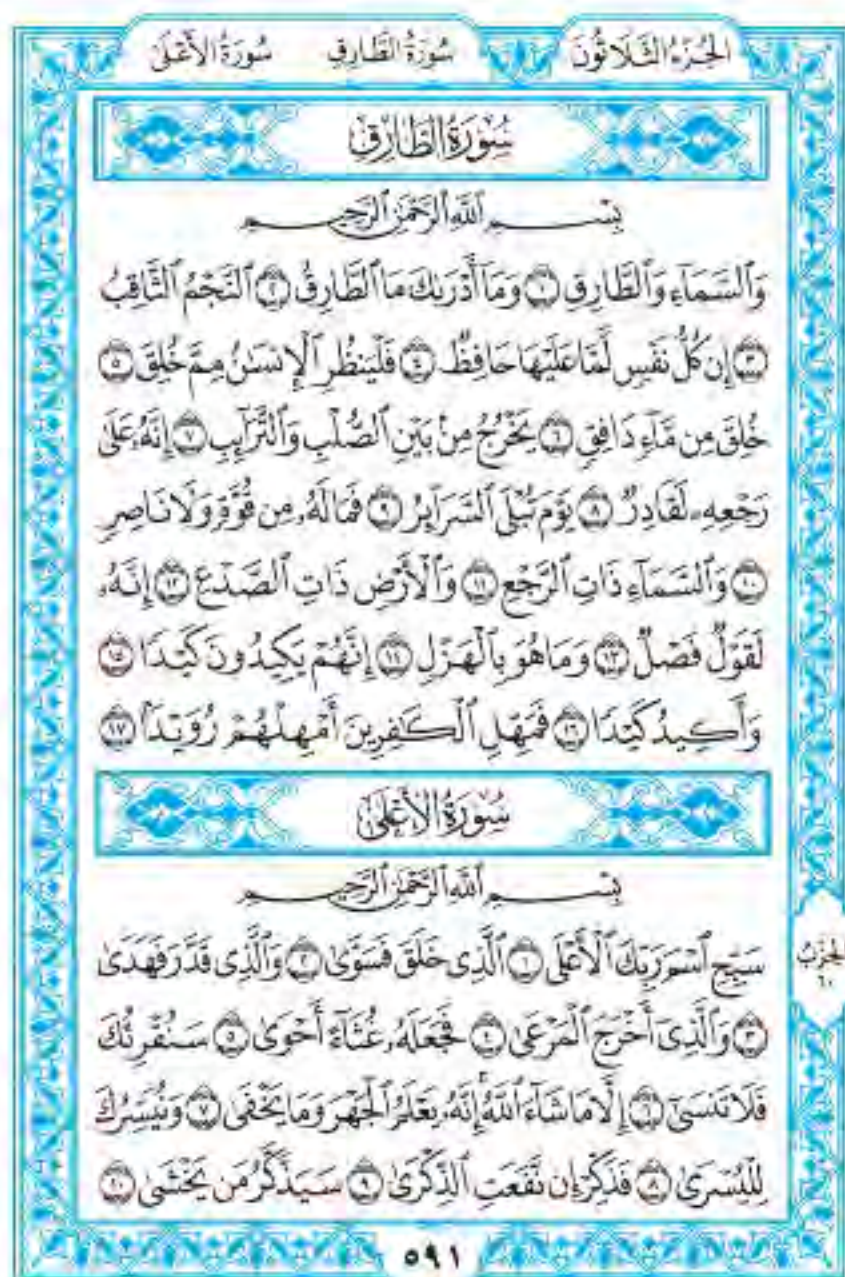 الجُزْءُ الثَّلَاثُونَ سُورَةُ الطَّارِقِ سُورَةُ الأَعْلَىٰ
سُورَةُ الطَّارِقِ
بِسْمِ ٱللَّهِ ٱلرَّحْمَٰنِ ٱلرَّحِيمِ
وَٱلسَّمَآءِ وَٱلطَّارِقِ ١ وَمَآ أَدْرَىٰكَ مَا ٱلطَّارِقُ ٢ ٱلنَّجْمُ ٱلثَّاقِبُ
٣ إِن كُلُّ نَفْسٍ لَّمَّا عَلَيْهَا حَافِظٌ ٤ فَلْيَنظُرِ ٱلْإِنسَٰنُ مِمَّ خُلِقَ ٥
خُلِقَ مِن مَّآءٍ دَافِقٍ ٦ يَخْرُجُ مِنۢ بَيْنِ ٱلصُّلْبِ وَٱلتَّرَآئِبِ ٧ إِنَّهُۥ عَلَىٰ
رَجْعِهِۦ لَقَادِرٌ ٨ يَوْمَ تُبْلَى ٱلسَّرَآئِرُ ٩ فَمَا لَهُۥ مِن قُوَّةٍ وَلَا نَاصِرٍ
١٠ وَٱلسَّمَآءِ ذَاتِ ٱلرَّجْعِ ١١ وَٱلْأَرْضِ ذَاتِ ٱلصَّدْعِ ١٢ إِنَّهُۥ
لَقَوْلٌ فَصْلٌ ١٣ وَمَا هُوَ بِٱلْهَزْلِ ١٤ إِنَّهُمْ يَكِيدُونَ كَيْدًا ١٥
وَأَكِيدُ كَيْدًا ١٦ فَمَهِّلِ ٱلْكَٰفِرِينَ أَمْهِلْهُمْ رُوَيْدًۢا ١٧
سُورَةُ الأَعْلَىٰ
بِسْمِ ٱللَّهِ ٱلرَّحْمَٰنِ ٱلرَّحِيمِ
سَبِّحِ ٱسْمَ رَبِّكَ ٱلْأَعْلَى ١ ٱلَّذِى خَلَقَ فَسَوَّىٰ ٢ وَٱلَّذِى قَدَّرَ فَهَدَىٰ
٣ وَٱلَّذِىٓ أَخْرَجَ ٱلْمَرْعَىٰ ٤ فَجَعَلَهُۥ غُثَآءً أَحْوَىٰ ٥ سَنُقْرِئُكَ
فَلَا تَنسَىٰٓ ٦ إِلَّا مَا شَآءَ ٱللَّهُ ۚ إِنَّهُۥ يَعْلَمُ ٱلْجَهْرَ وَمَا يَخْفَىٰ ٧ وَنُيَسِّرُكَ
لِلْيُسْرَىٰ ٨ فَذَكِّرْ إِن نَّفَعَتِ ٱلذِّكْرَىٰ ٩ سَيَذَّكَّرُ مَن يَخْشَىٰ ١٠
الحِزْبُ
٦٠
٥٩١